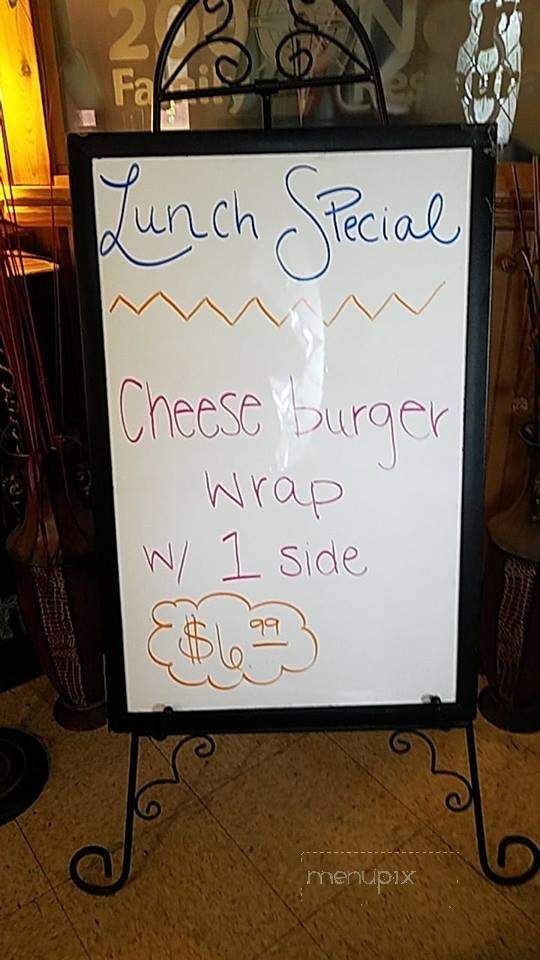 200 Nor
Family Res
Lunch Special
Cheese burger
wrap
w/ 1 side
$6.99
menupix